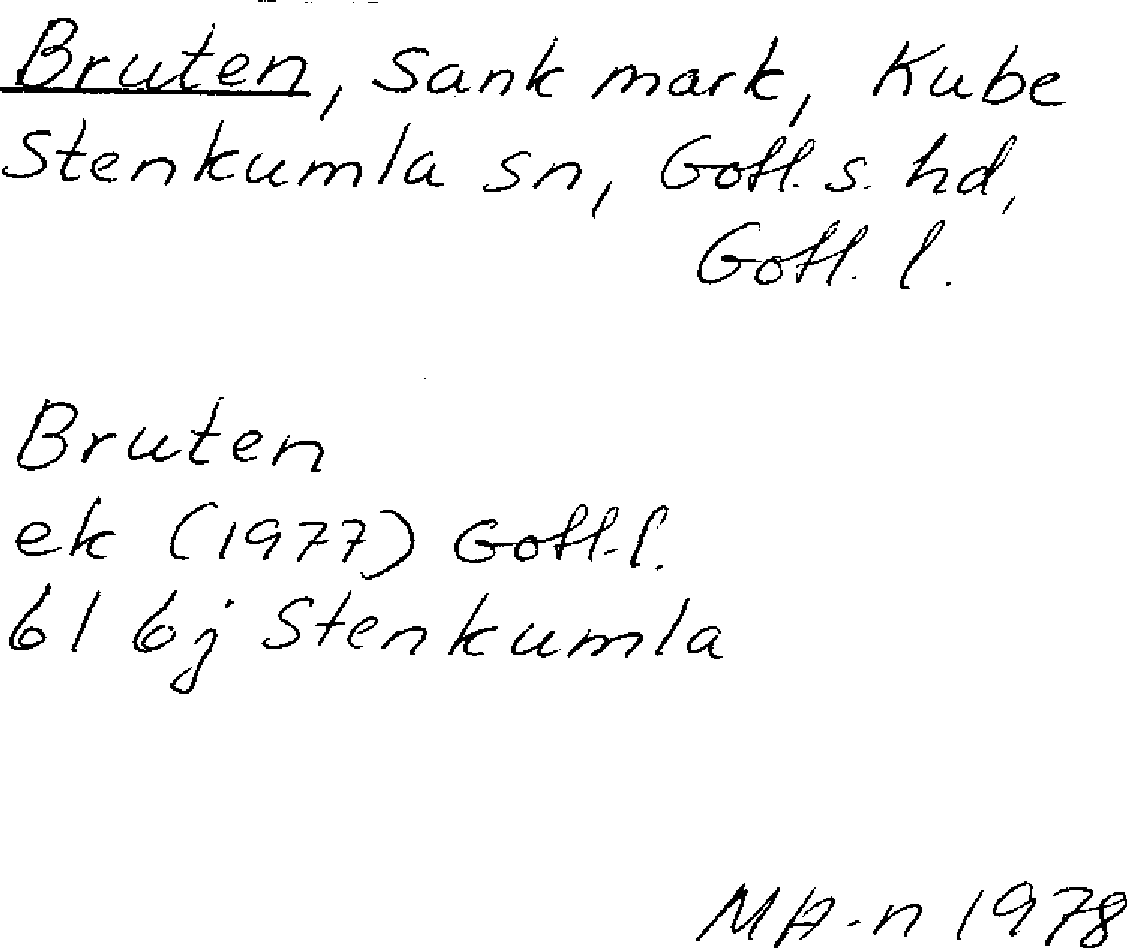 Bruten, Sank mark, Kube
Stenkumla sn, Gotl. s. hd,
Gotl. l.
Bruten
ek (1977) Gotl. l.
6I 6j Stenkumla
MA-n 1978